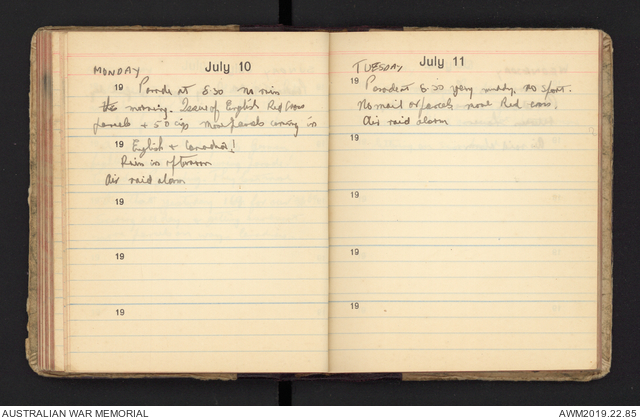 MONDAY July 10
19 Parade at 8.30 no rain
this morning. Issue of English Red Cross
parcels + 50 cigs More parcels coming in
19 English + Canadian!
Rain in afternoon
Air raid alarm
19
19
19
TUESDAY July 11
19 Parade at 8.30 very muddy, no sport.
No mail or parcels more Red cross.
Air raid alarm
19
19
19
19
AUSTRALIAN WAR MEMORIAL
AWM2019.22.85